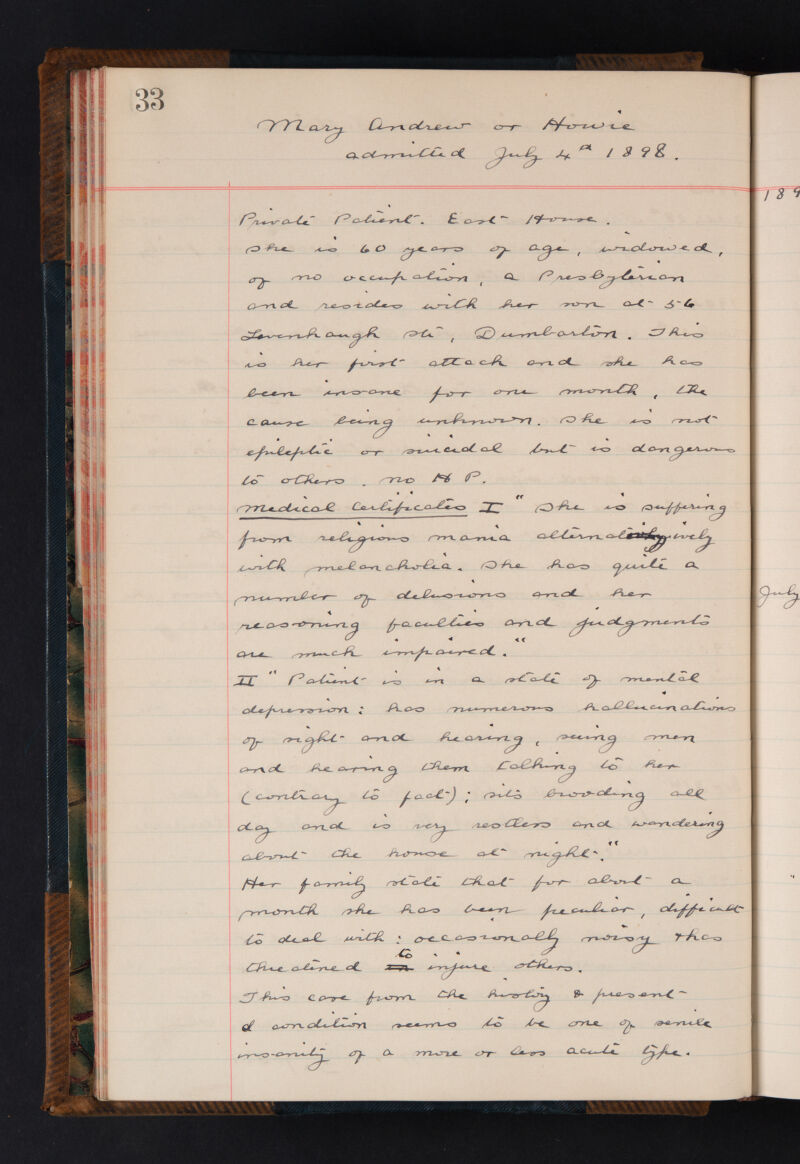 33
Mary Andrew or Howie
admitted July 4th 1898.
189
Private Patient. East House.
She is 60 years of age, widowed,
of no occupation, a Presbyterian
and resides with her son at 56
Levenhaugh St, Dumbarton. This
is her first attack and she has
been insane for one month, the
cause being unknown. She is not
epileptic or suicidal but is dangerous
to others. no H P.
Medical Certificates I "She is suffering
from religious mania alternatively
with melancholia. She has quite a
number of delusions and her
July
reasoning faculties and judgments
are much impaired."
II "Patient is in a state of mental
depression: has numerous hallucinations
of sight and hearing, seeing men
and hearing them talking to her
(contrary to fact); sits brooding all
day and is very restless and wandering
about the house at night."
Her family state that for about a
month she has been peculiar, difficult
to deal with: occasionally noisy & has
threatened to injure others.
This case from the history & present
condition seems to be one of senile
insanity of a more or less acute type.